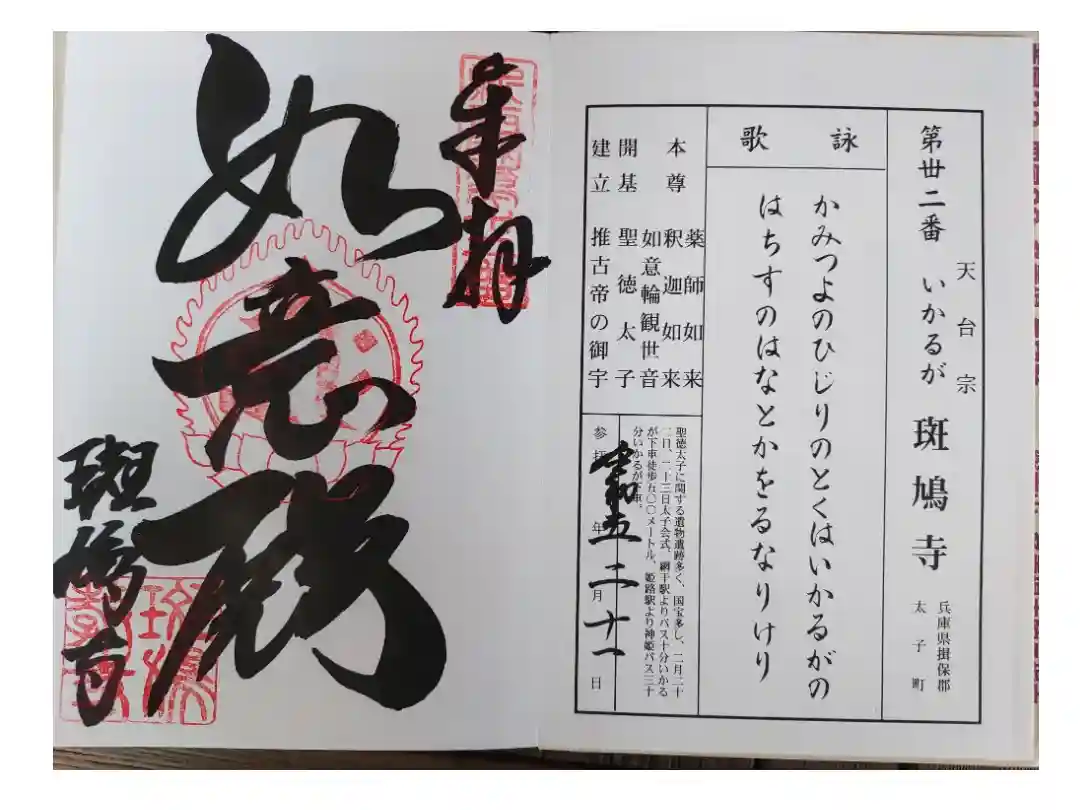 天台宗
第丗二番 いかるが 斑鳩寺 兵庫県揖保郡
太子町
詠歌
かみつよのひじりのとくはいかるがの
はちすのはなとかをるなりけり
本尊 薬師如来
釈迦如来
如意輪観世音
開基 聖徳太子
建立 推古帝の御宇
聖徳太子に関する遺物遺跡多く、国宝多し、二月二十
二日、二十三日太子会式、網干駅よりバス十分いかる
が下車徒歩五〇〇メートル、姫路駅より神姫バス三十
分いかるが下車。
参拝 令和五年二月十一日
奉拝
如意殿
斑鳩寺